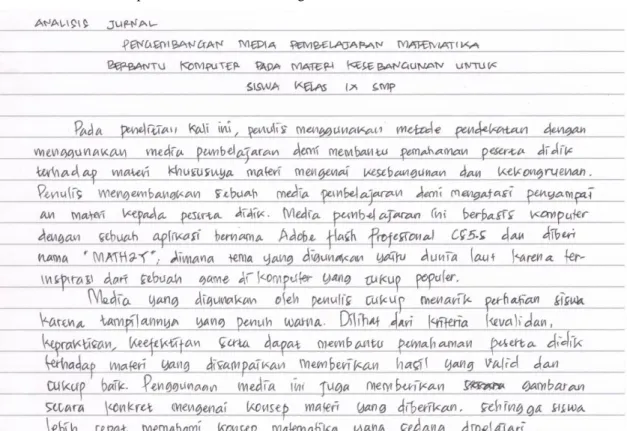 ANALISIS JURNAL
PENGEMBANGAN MEDIA PEMBELAJARAN MATEMATIKA
BERBANTU KOMPUTER PADA MATERI KESEBANGUNAN UNTUK
SISWA KELAS IX SMP
Pada penelitian kali ini, penulis menggunakan metode pendekatan dengan
menggunakan media pembelajaran demi membantu pemahaman peserta didik
terhadap materi khususnya materi mengenai kesebangunan dan kekongruenan.
Penulis mengembangkan sebuah media pembelajaran demi mengatasi penyampai
an materi kepada peserta didik. Media pembelajaran ini berbasis komputer
dengan sebuah aplikasi bernama Adobe flash Profesional CS5.5 dan diberi
nama "MATH2T", dimana tema yang digunakan yaitu dunia laut karena ter-
inspirasi dari sebuah game di komputer yang cukup populer.
Media yang digunakan oleh penulis cukup menarik perhatian siswa
karena tampilannya yang penuh warna. Dilihat dari kriteria kevalidan,
kepraktisan, keefektifan serta dapat membantu pemahaman peserta didik
terhadap materi yang disampaikan memberikan hasil yang valid dan
cukup baik. Penggunaan media ini juga memberikan gambaran
secara konkret mengenai konsep materi yang diberikan. sehingga siswa
lebih cepat memahami konsep matematika yang sedang dipelajari